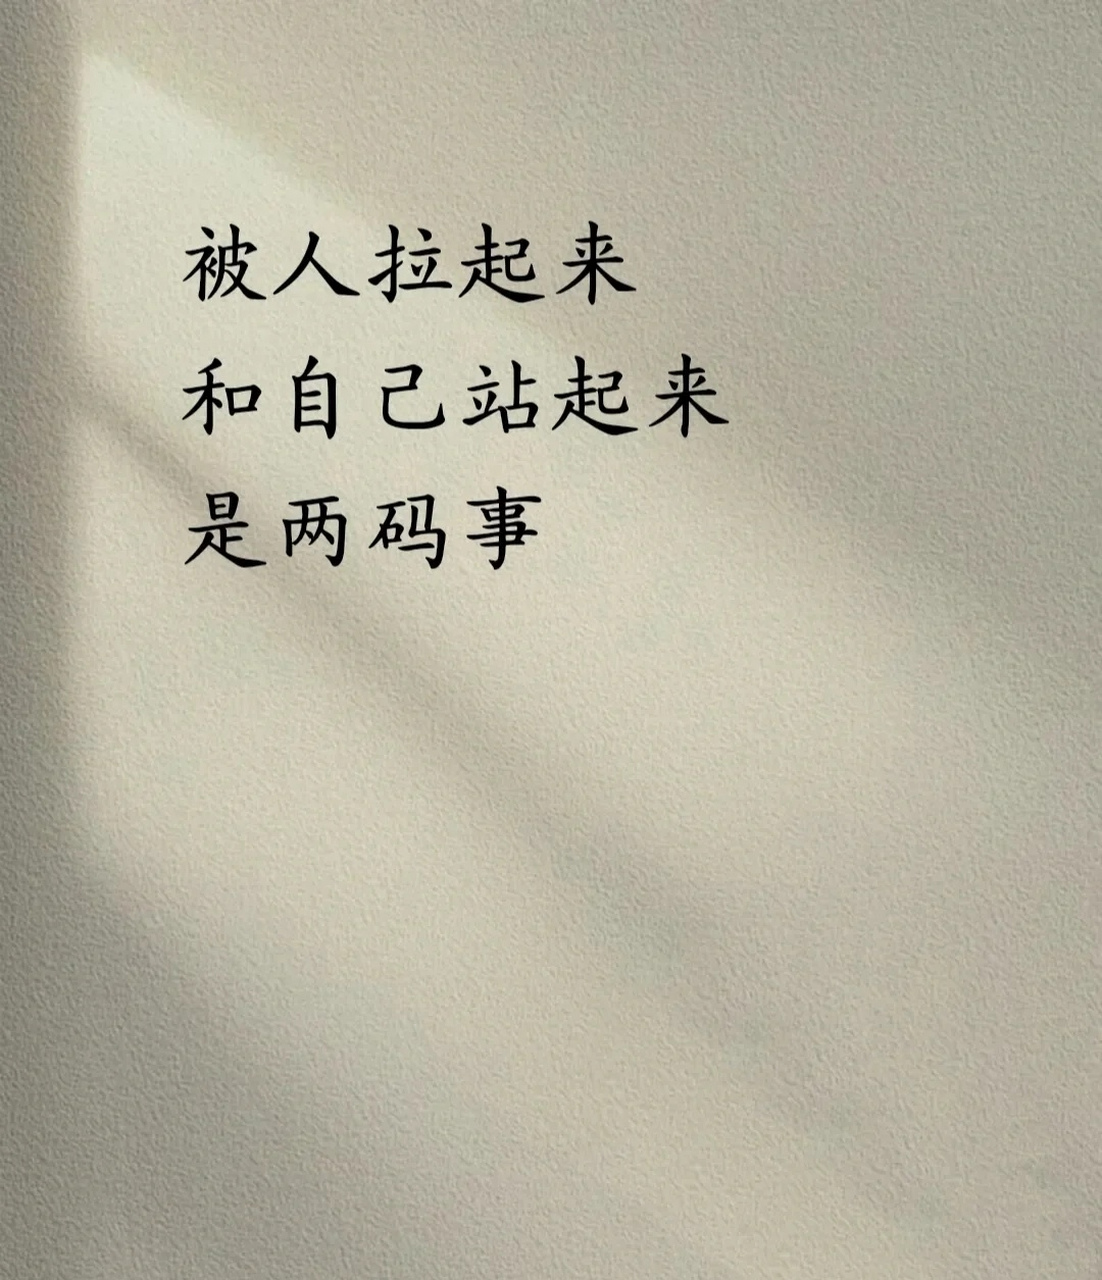 被人拉起来
和自己站起来
是两码事